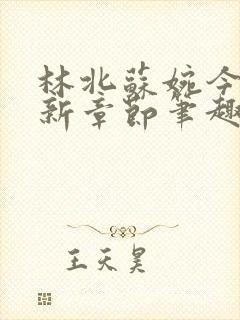 林北蘇婉今
新章節筆趣
王天昊